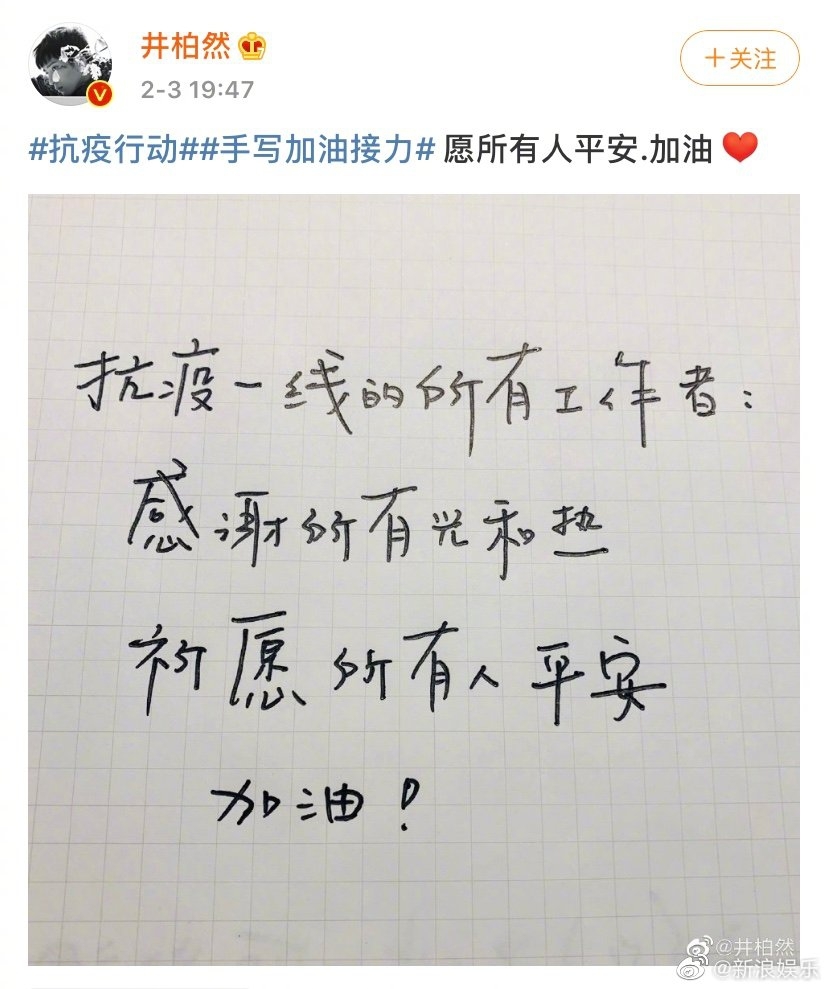 井柏然
2-3 19:47
+关注
#抗疫行动##手写加油接力# 愿所有人平安.加油
抗疫一线的所有工作者：
感谢所有光和热
祈愿所有人平安
加油！
@井柏然
@新浪娱乐